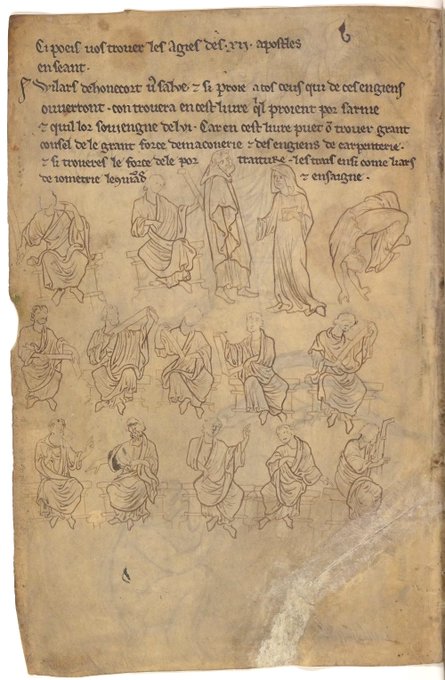 Ci poeis vos trover les agies des .xii. apostles
en seant.
Wilars dehonecort v9 salue ⁊ si proie a tos ceus qui de ces engiens
ouverront con trouera en cest liure ql proient por sarme
⁊ quil lor soviengne de lui. Car en cest liure puet õ trouer grant
consel de le grant force de maconerie ⁊ des engiens de carpenterie.
⁊ si troueres le force dele por traiture les trais ensi come li ars
de iometrie le ⁊ ensaigne.